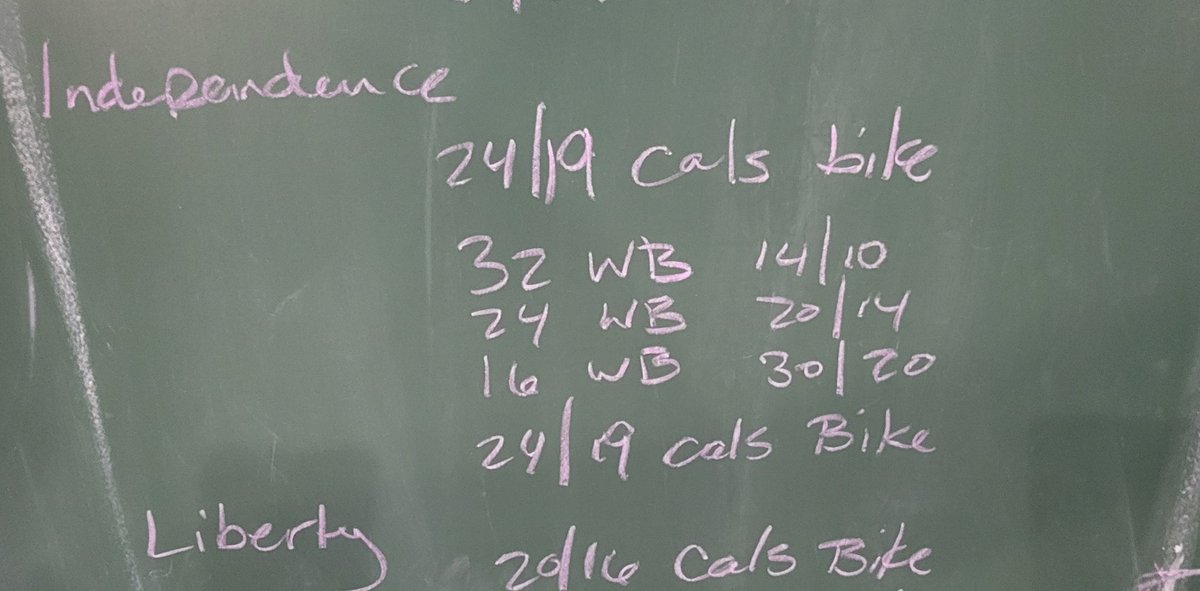 Independence
24/19 cals bike
32 WB 14/10
24 WB 20/14
16 WB 30/20
24/19 cals Bike
Liberty 20/16 Cals Bike